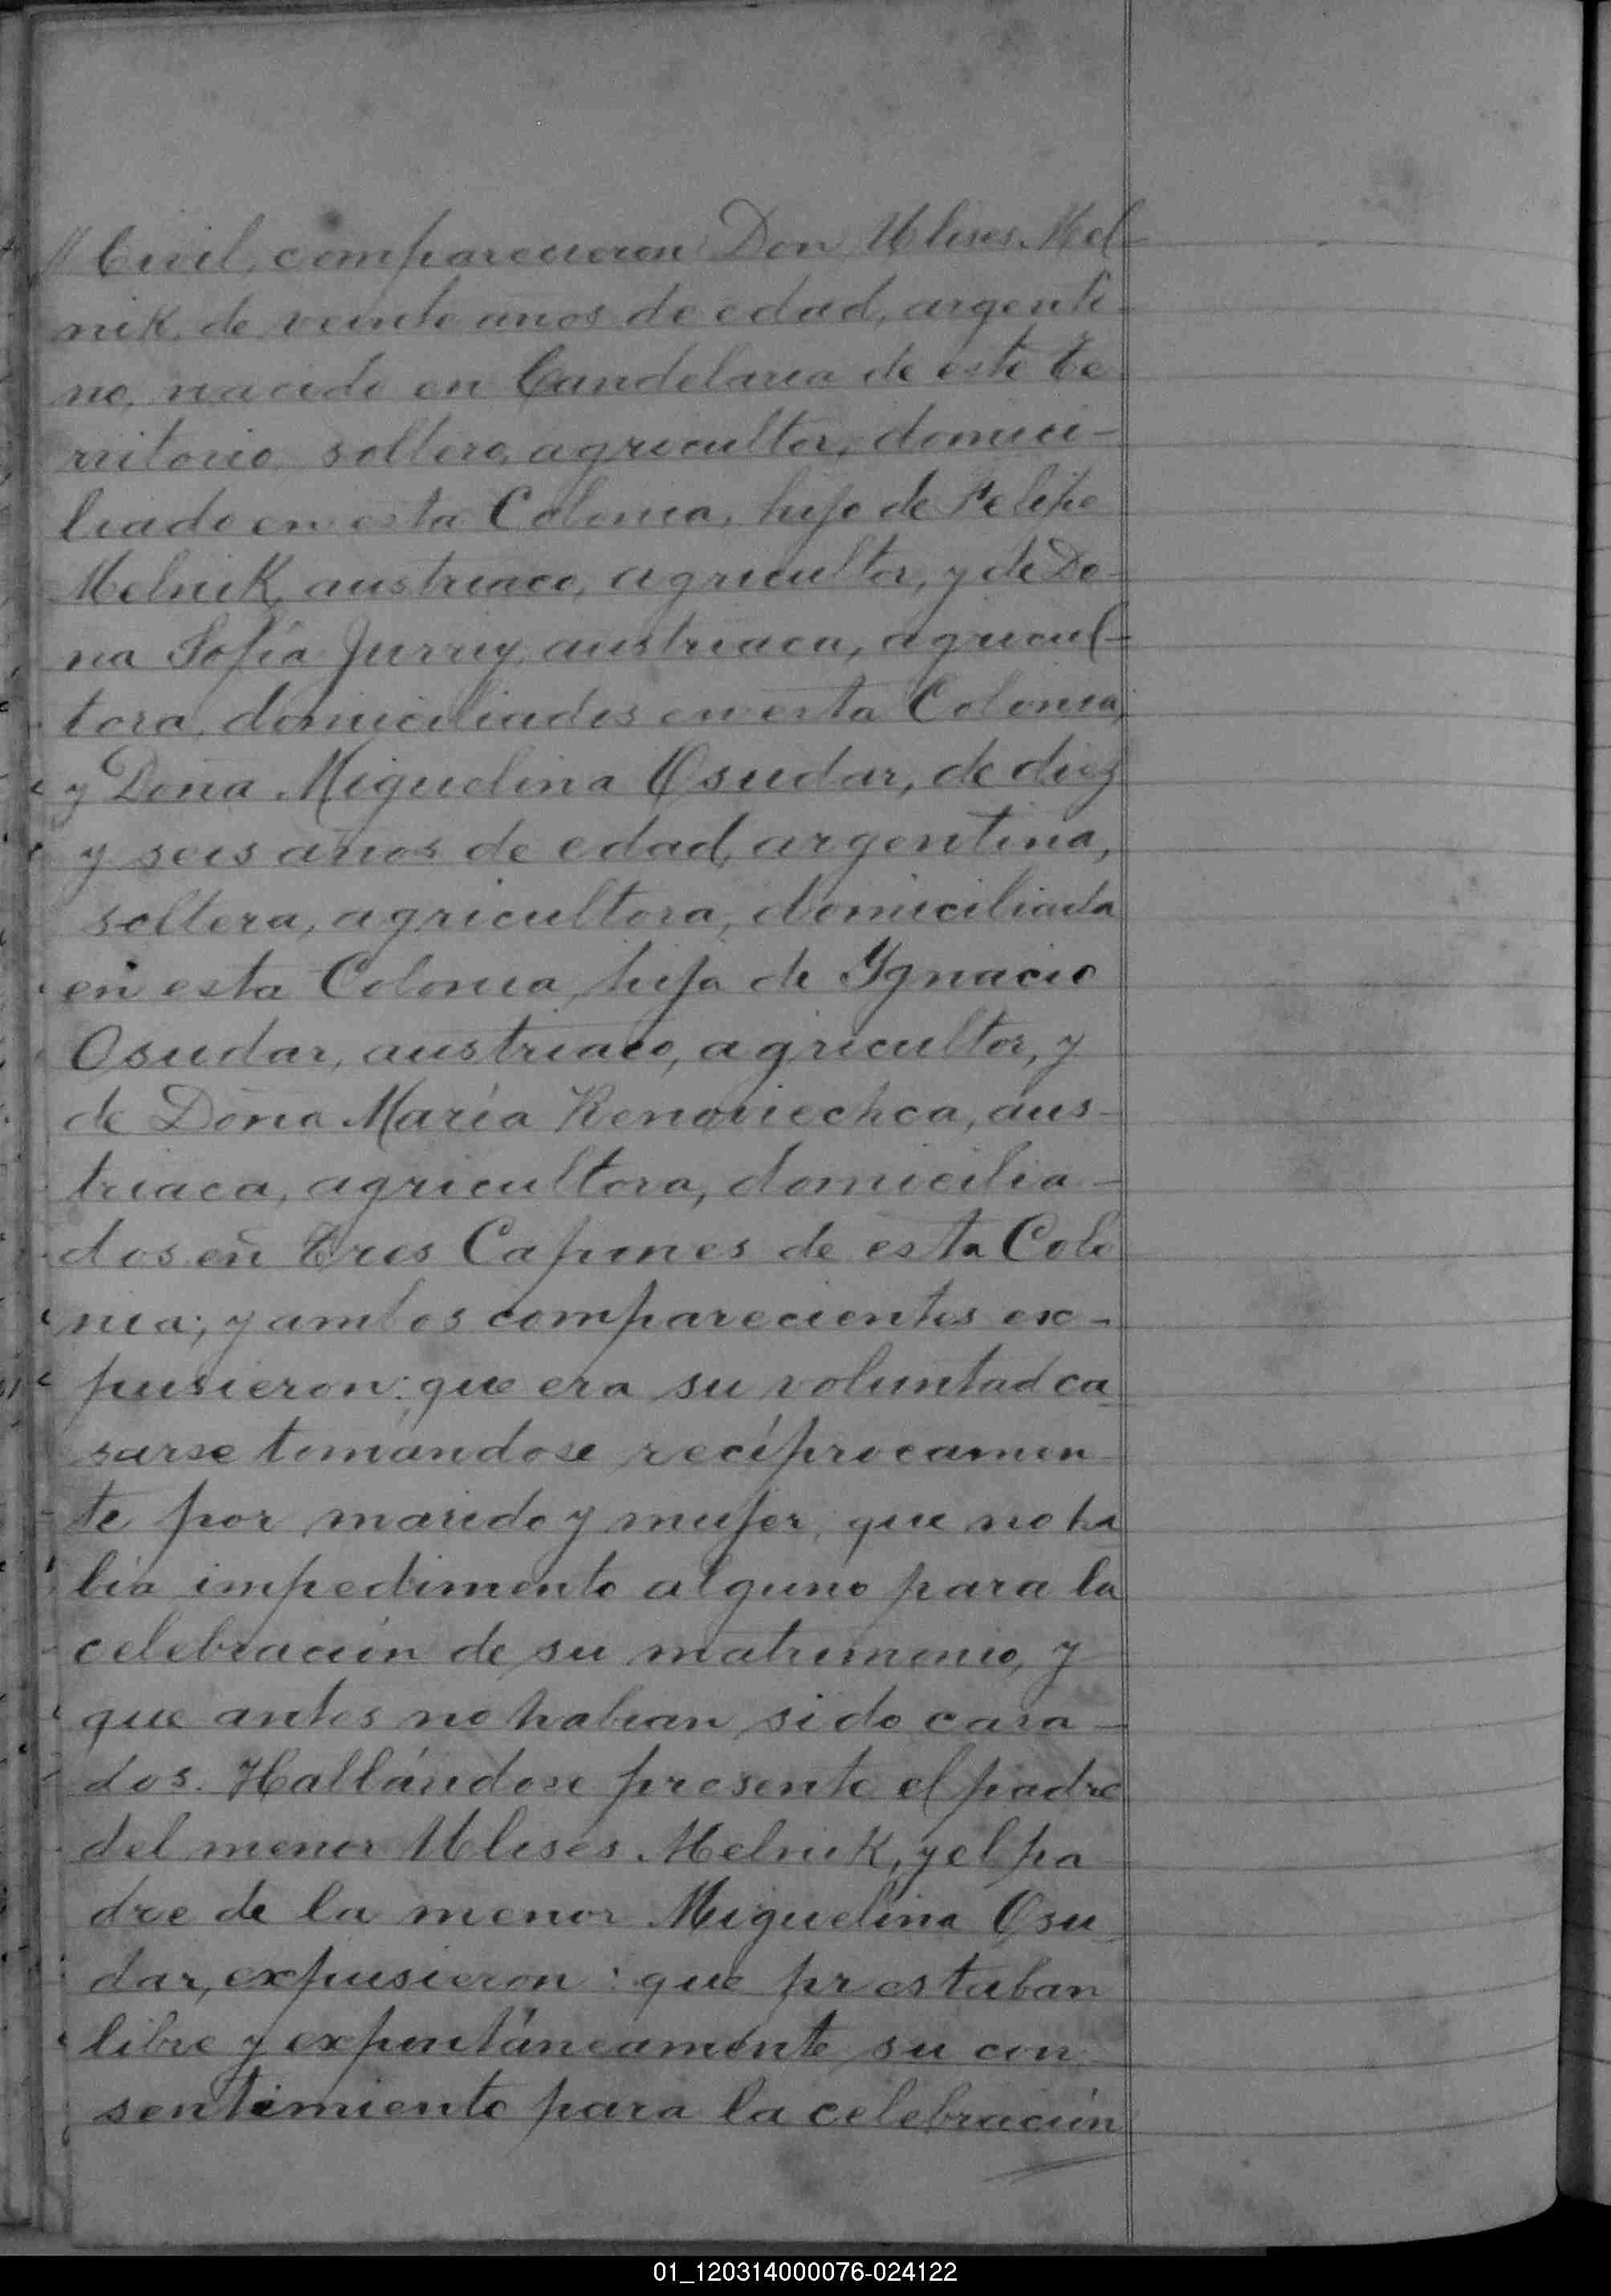 // Civil, comparecieron Don Ulises Mel-
nik, de veinte años de edad, argenti-
no, nacido en Candelaria de este Te-
rritorio, soltero, agricultor, domici-
liado en esta Colonia, hijo de Felipe
Melnik, austriaco, agricultor, y de Do-
ña Sofía Jurriy, austriaca, agricul-
tora, domiciliados en esta Colonia,
y Doña Miguelina Osudar, de diez
y seis años de edad, argentina,
soltera, agricultora, domiciliada
en esta Colonia, hija de Ygnacio
Osudar, austriaco, agricultor, y
de Doña María Kenoviechca, aus-
triaca, agricultora, domicilia-
dos en Tres Capones de esta Colo
nia; y ambos comparecientes ex-
pusieron: que era su voluntad ca
sarse tomandose recíprocamen
te por marido y mujer; que no ha
bía impedimento alguno para la
celebración de su matrimonio, y
que antes no habian sido casa-
dos. Hallándose presente el padre
del menor Ulises Melnik, y el pa
dre de la menor Miguelina Osu
dar, expusieron: que prestaban
libre y expontáneamente su con
sentimiento para la celebración
01_120314000076-024122